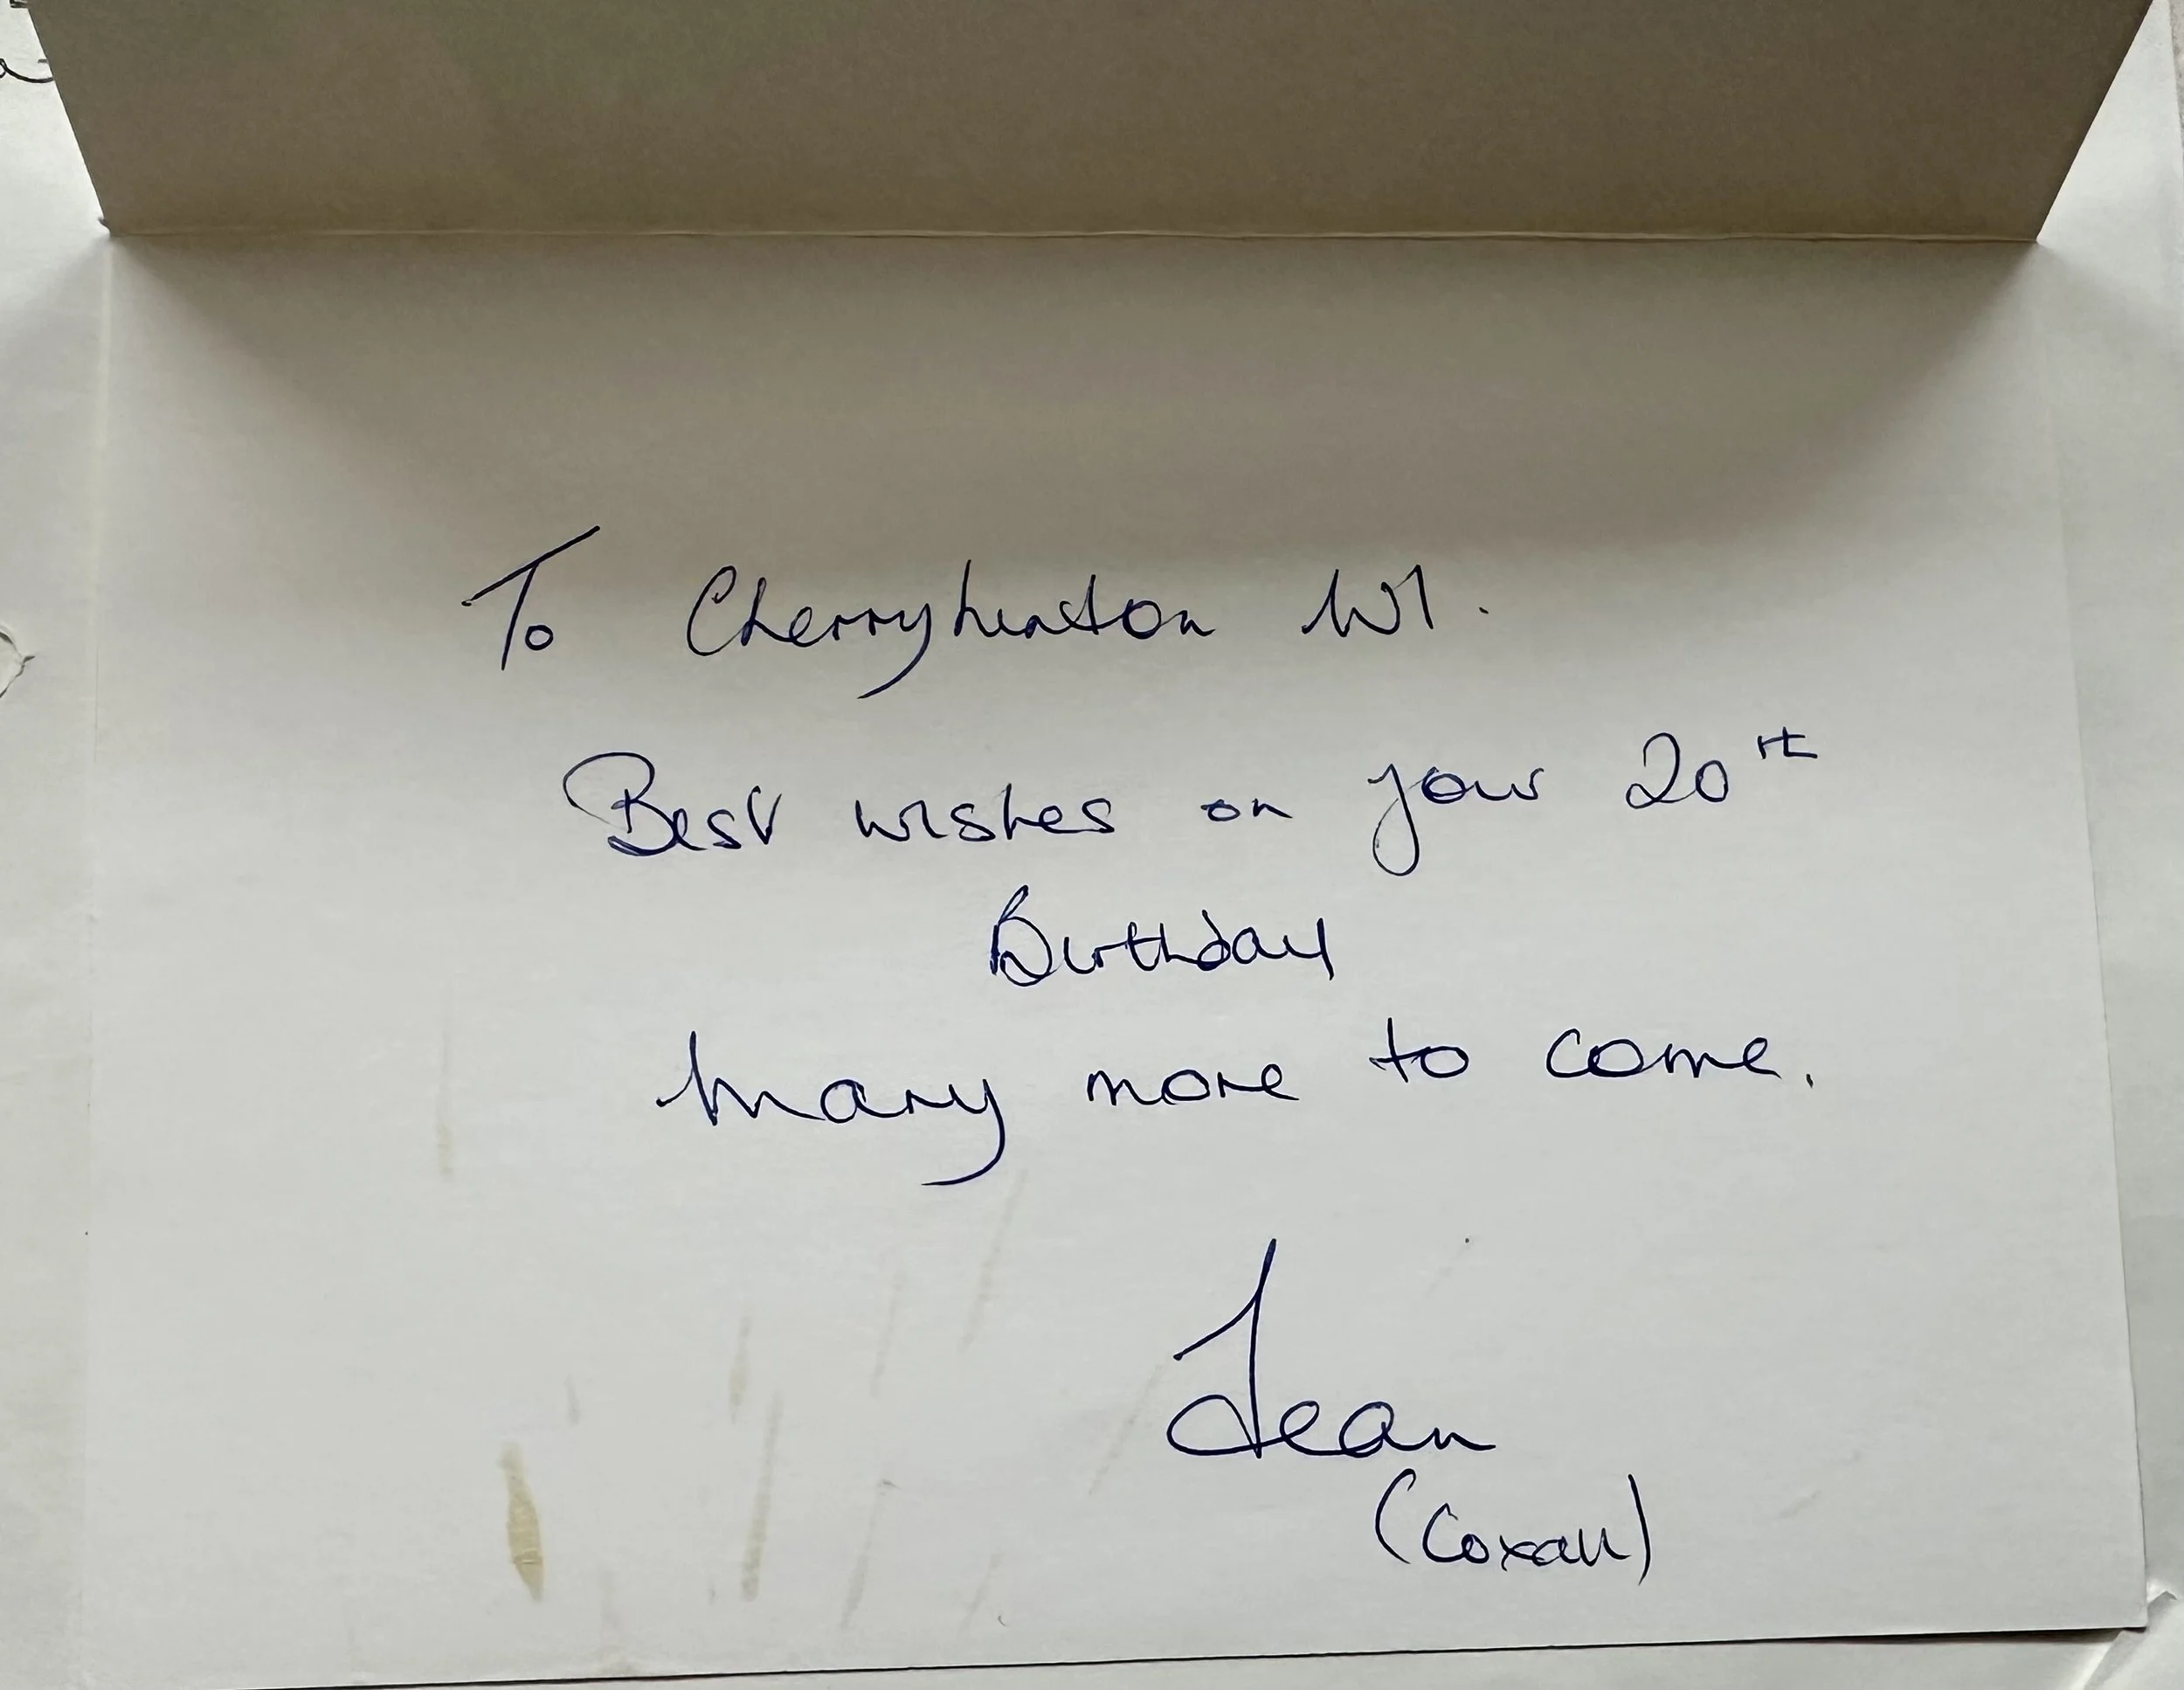 To Cherryhinton WI.
Best wishes on your 20th
Birthday
Many more to come.
Jean
(Coxall)